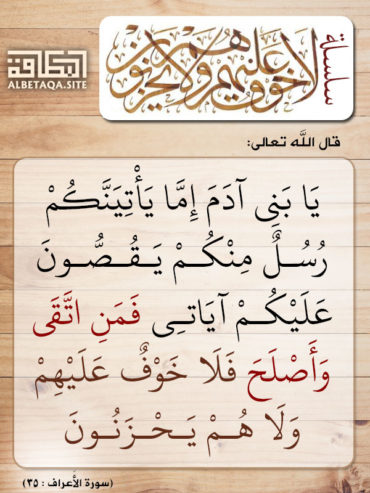 سلسلة
لا خوف عليهم ولا هم يحزنون
البطاقة
ALBETAQA.SITE
قال اللَّه تعالى:
يَا بَنِي آدَمَ إِمَّا يَأْتِيَنَّكُمْ
رُسُـلٌ مِنْكُـمْ يَـقُـصُّـونَ
عَلَيْكُـمْ آيَاتـِي فَمَنِ اتَّقَى
وَأَصْلَحَ فَلَا خَوْفٌ عَلَيْهِمْ
وَلَا هُـمْ يَـحْـزَنُـونَ
(سورة الأعراف : ٣٥)